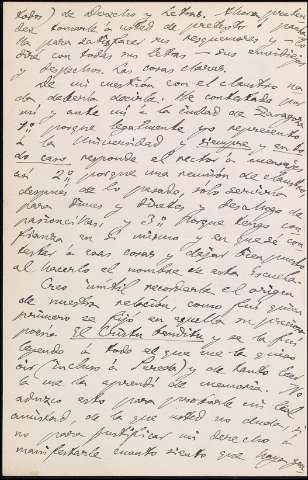 todos) de Derecho y Letras. Ahora preten-
der tomarle á usted de pretexto ó
pa para satisfacer sus resquemores
dirá con todas sus letras — sus envidias
y despechos. Las cosas claras.
De mi cuestión con el claustro na-
da debería decirle. He contestado por
mí y ante mí á la ciudad de Zaragoza
1º porque legalmente yo represento
á la Universidad y siempre y en to-
do caso responde el rector á mensajes
así 2º porque una reunión de claustro
después de lo pasado, solo serviría
para dimes y diretes y desahogo de
pasioncillas, y 3º porque tengo con-
fianza en mí mismo y en que sé con-
testar á esas cosas y dejar bien puesto
al hacerlo el nombre de esta Escuela.
Creo inútil recordarle el origen
de nuestra relación, como fuí quien
primero se fijó en aquella su preciosa
poesía El Cristu benditu y se la fuí
leyendo á todo el que me la quiso
oir (incluso á Pereda) y de tanto leer-
la me la aprendí de memoria. Y
aduzco esto para probarle mi leal
amistad, de la que usted no duda, si
no para justificar mi derecho á
manifestarle cuanto siento que haya